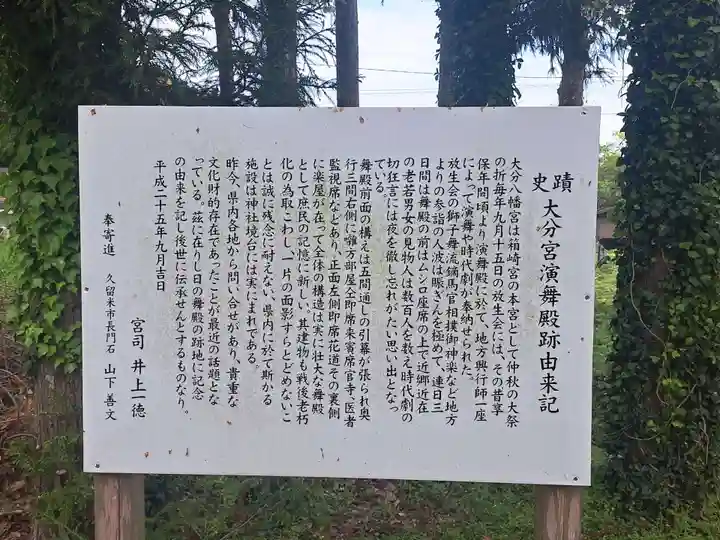 史蹟 大分宮演舞殿跡由来記
大分八幡宮は箱崎宮の本宮として仲秋の大祭
の折毎年九月十五日の放生会には、その昔享
保年間頃より演舞殿に於て、地方興行師一座
によって演舞や時代劇が奉納せられた。
放生会の獅子舞流鏑馬官相撲御神楽など地方
よりの参詣の人波は賑ぎんを極めて、連日三
日間は舞殿の前はムシロ座席の上で近郷近在
の老若男女の見物人は数百人を数え時代劇の
切狂言には夜を徹し忘れがたい思い出となっ
ている。
舞殿前面の構えは五間通しの引幕が張られ奥
行三間右側に囃方部屋全即席来賓席官寺、医者
監視席などあり、正面左側即席花道その裏側
に楽屋が在って全体の構造は実に壮大な舞殿
として庶民の記憶に新しい、其建物も戦後老朽
化の為取こわし、一片の面影すらとどめないこ
とは誠に残念に耐えない、県内に於て斯かる
施設は神社境台には実にまれである。
昨今、県内各地から問い合せがあり、貴重な
文化財的存在であったことが最近の話題とな
っている。茲に在りし日の舞殿の跡地に記念
の由来を記し後世に伝承せんとするものなり。
平成二十五年九月吉日
宮司 井上一徳
奉寄進 久留米市長門石 山下善文